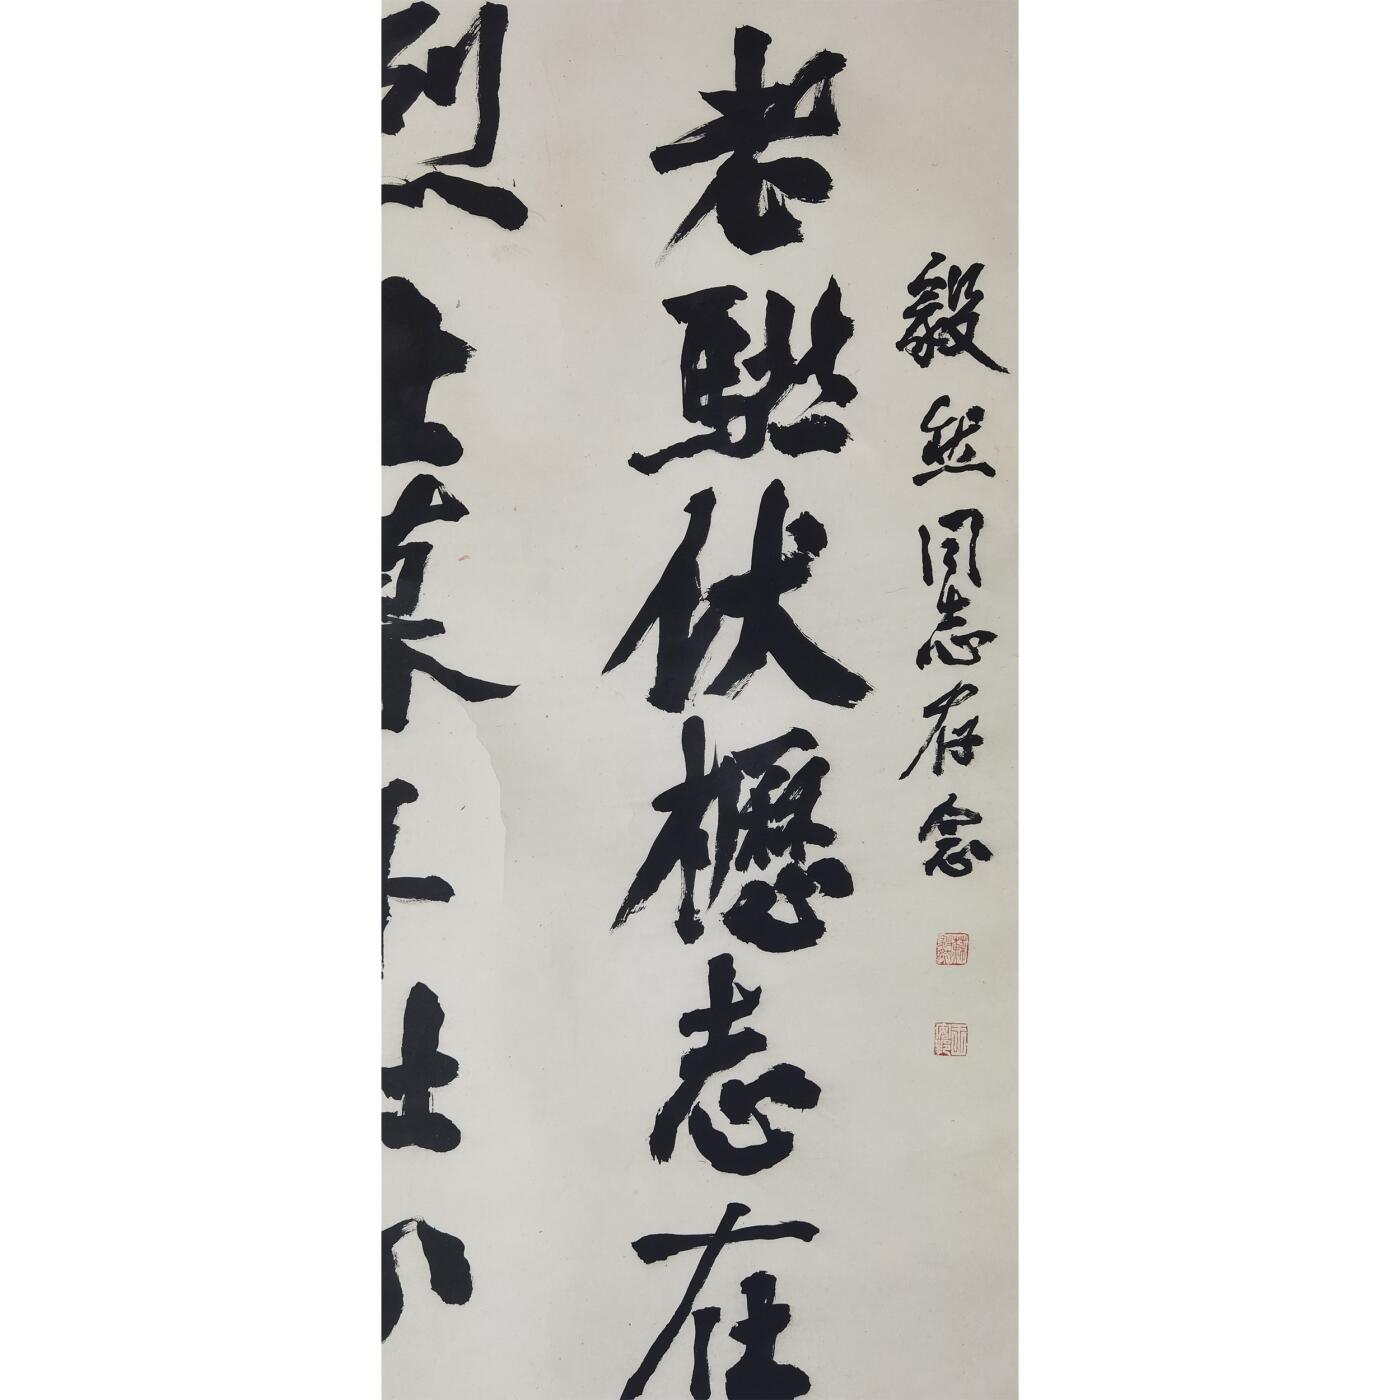 毅然同志存念
老骥伏櫪志在
烈士暮年壮心